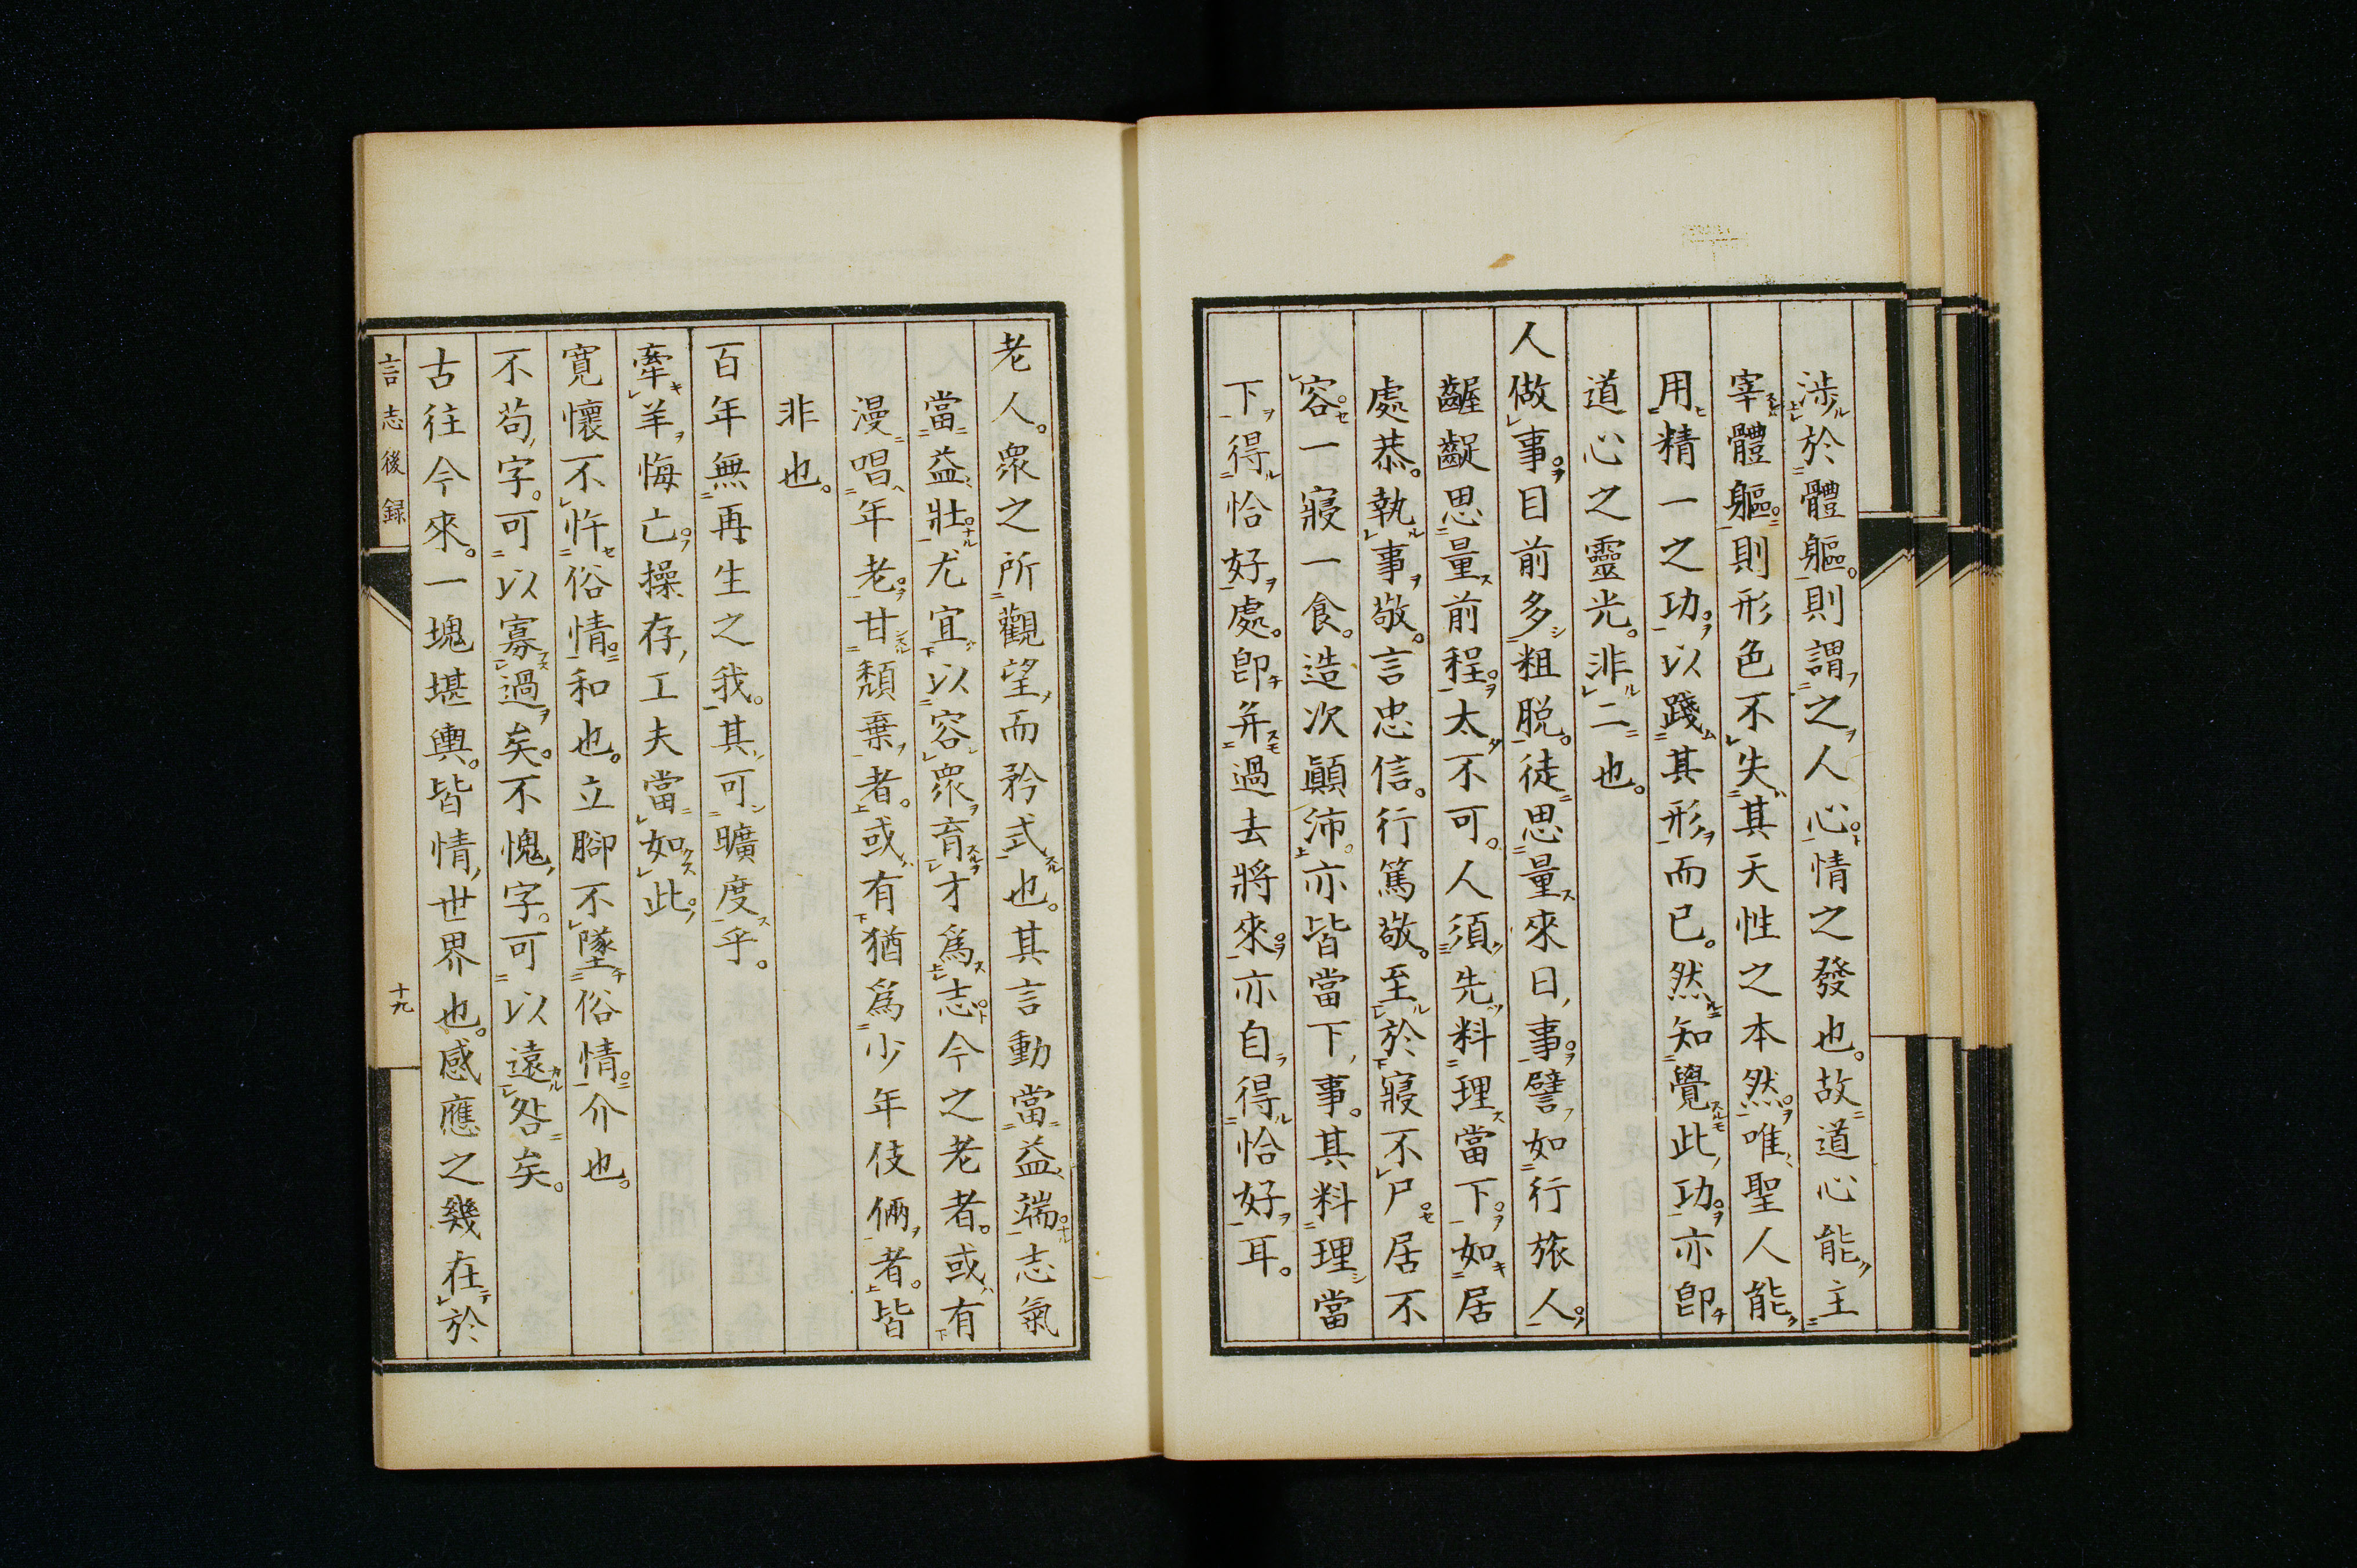 涉於體軀。則謂之人心。情之發也。故道心能主
宰體軀。則形色不失其天性之本然。唯聖人能
用精一之功。以踐其形而已。然知覺此功。亦卽
道心之靈光。非二也。
人做事。目前多粗脱。徒思量來日事。譬如行旅人。
齷齪思量前程。太不可。人須先料理當下。如居
處恭。執事敬。言忠信。行篤敬。至於寢不尸。居不
容。一寢一食。造次顚沛。亦皆當下事。其料理當
下得恰好處。卽并過去將來。亦自得恰好耳。
老人。衆之所觀望而矜式也。其言動當益端。志氣
當益壯。尤宜以容衆育才爲志。今之老者。或有
漫唱年老。甘頽棄者。或有猶爲少年伎倆者。皆
非也。
百年無再生之我。其可曠度乎。
牽羊悔亡。操存工夫當如此。
寬懷不忤俗情。和也。立脚不墜俗情。介也。
不苟字。可以寡過矣。不愧字。可以遠咎矣。
古往今來。一塊堪輿。皆情世界也。感應之幾在於
言志後録
十九